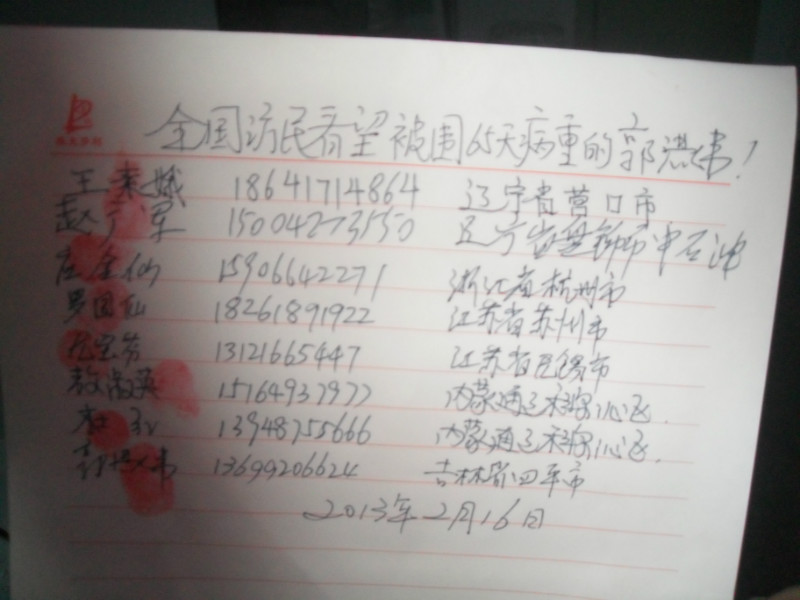 全国访民看望被围65天病重的郭洪伟!
王素娥 18641714864 辽宁省营口市
赵广军 15004273150 辽宁省盘锦市中石油
庄金仙 15906642271 浙江省杭州市
罗国仙 18261891922 江苏省苏州市
尤宝芬 13121665447 江苏省无锡市
敖淑英 15164937977 内蒙通辽科尔沁区
13948755666 内蒙通辽科尔沁区.
郭洪伟 13699206624 吉林省四平市
2013年2月16日